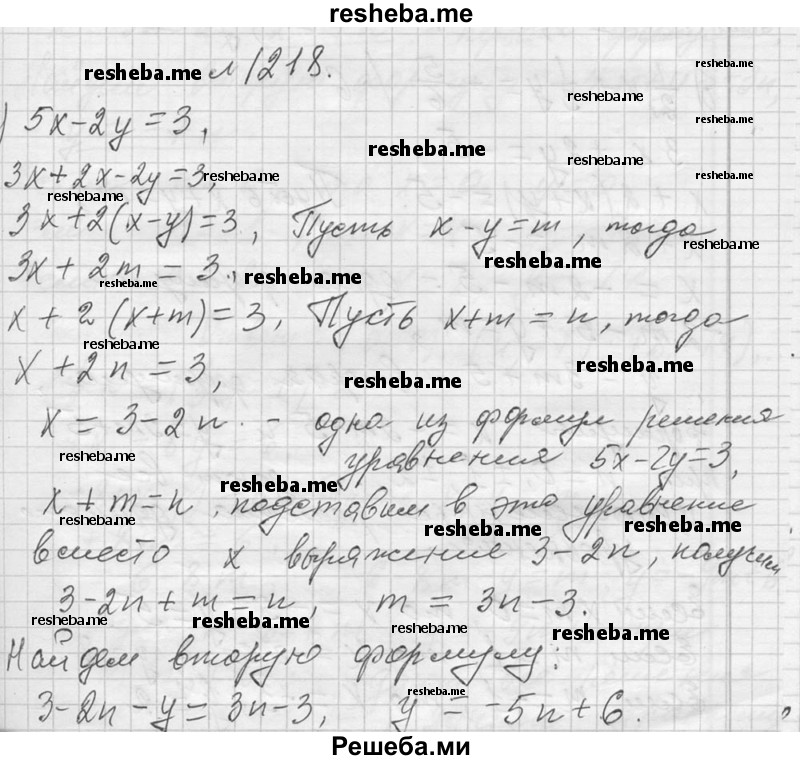 resheba.me
resheba.me № 1218. resheba.me
) 5x-2y=3, resheba.me
resheba.me resheba.me
3x+2x-2y=3, resheba.me resheba.me
resheba.me
3x+2(x-y)=3, Пусть x-y=m, тогда
resheba.me
3x+2m=3, resheba.me resheba.me
resheba.me
x+2(x+m)=3, Пусть x+m=n, тогда
resheba.me
x+2n=3, resheba.me resheba.me
x=3-2n. - одна из формул решения
resheba.me уравнения 5x-2y=3,
resheba.me
x+m=n, подставим в это уравнение
resheba.me resheba.me resheba.me
вместо x выражение 3-2n, получим
3-2n+m=n, m=3n-3.
resheba.me resheba.me resheba.me resheba.me
Найдем вторую формулу:
resheba.me
3-2n-y=3n-3, y=-5n+6.
resheba.me
Решеба.ми